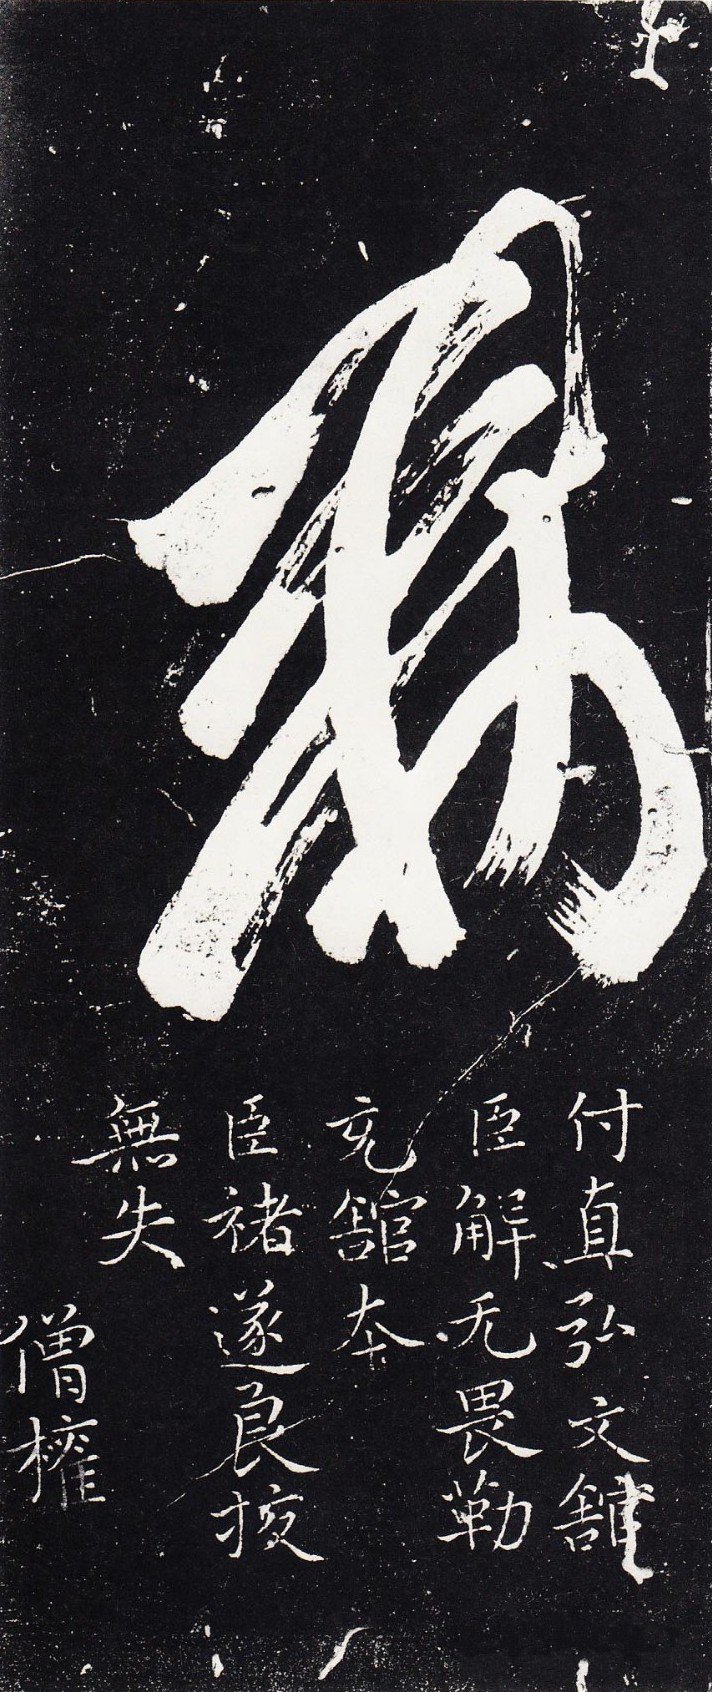 敕
付直弘文舘
臣解无畏勒
充舘本
臣褚遂良挍
無失
僧權